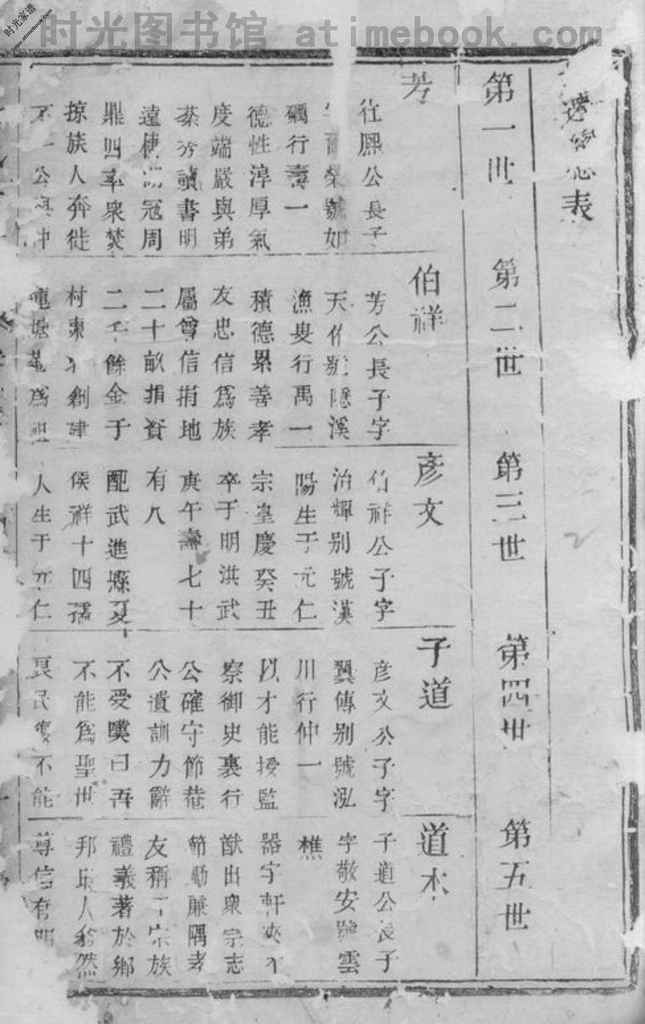 时光家谱
时光图书馆 atimebook.com
表
第一世
芳
熙公長子
號如
行壽一
德性淳厚氣
度端嚴與弟
讀書明
遠使冠周
四率衆焚
掠族人奔徙
公
第二世
伯祥
芳公長子字
天伯號隱溪
漁叟行萬一
積德累善孝
友忠信爲族
屬尊信捐地
二十畝捐資
二千餘金于
村東創建
爲
第三世
彥文
伯祥公子字
治輝别號漢
陽生于元仁
宗皇慶癸丑
卒于明洪武
庚午壽七十
有八
配武進縣夏
侯祥十四孺
人生于元仁
第四世
子道
彥文公子字
翼傳别號泓
川行仲一
以才能授監
察御史裏行
公確守節菴
公遺訓力辭
不受嘆曰吾
不能爲聖世
良民不能
第五世
道本
子道公長子
字敬安號雲
樵
器宇軒
猷出衆宗志
節勵廉隅孝
友稱于宗族
禮義著於鄉
邦人翕然
尊信有